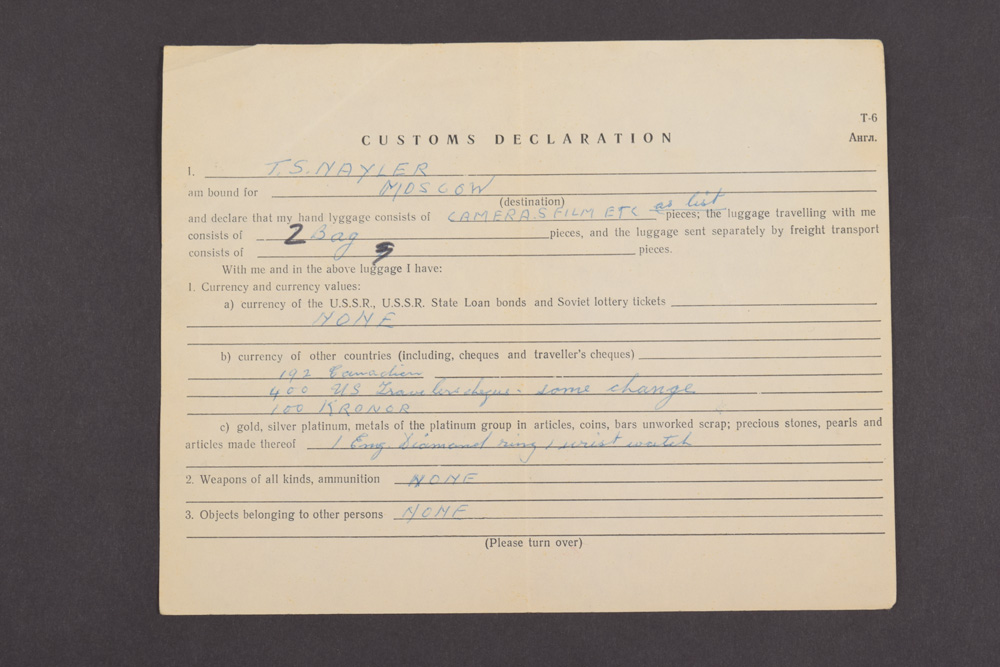 T-6
CUSTOMS DECLARATION
Англ.
I. T.S. NAYLER
am bound for MOSCOW
(destination)
and declare that my hand lyggage consists of CAMERAS FILM ETC as list pieces; the luggage travelling with me
consists of 2 Bag pieces, and the luggage sent separately by freight transport
consists of 5 pieces.
With me and in the above luggage I have:
1. Currency and currency values:
a) currency of the U.S.S.R., U.S.S.R. State Loan bonds and Soviet lottery tickets
NONE
b) currency of other countries (including, cheques and traveller's cheques)
192 Canadian
400 US Travelers cheques - some change
100 KRONOR
c) gold, silver platinum, metals of the platinum group in articles, coins, bars unworked scrap; precious stones, pearls and
articles made thereof 1 Eng. Diamond ring 1 wrist watch
2. Weapons of all kinds, ammunition NONE
3. Objects belonging to other persons NONE
(Please turn over)